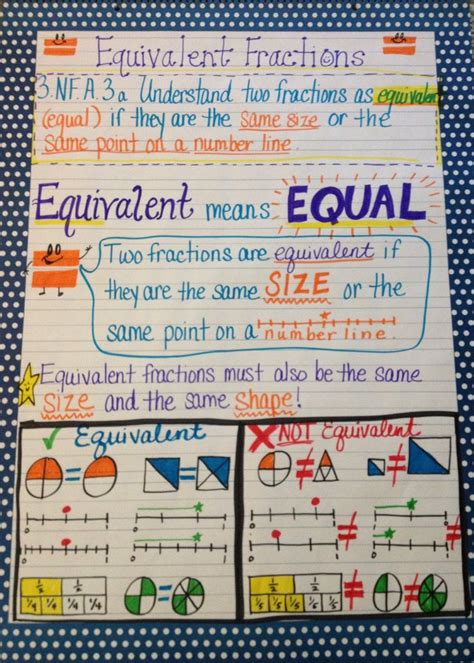 Equivalent Fractions
3.NF.A.3a Understand two fractions as equivalent
(equal) if they are the same size or the
same point on a number line.
Equivalent means EQUAL
Two fractions are equivalent if
they are the same SIZE or the
same point on a number line.
Equivalent fractions must also be the same
SIZE and the same Shape!
✓ Equivalent
=
=
0 1
0 1
1/2 1/2
1/4 1/4 1/4 1/4
=
X NOT Equivalent
≠
≠
≠
≠
1/2 1/2
1/5 1/5 1/5 1/5 1/5
≠
≠